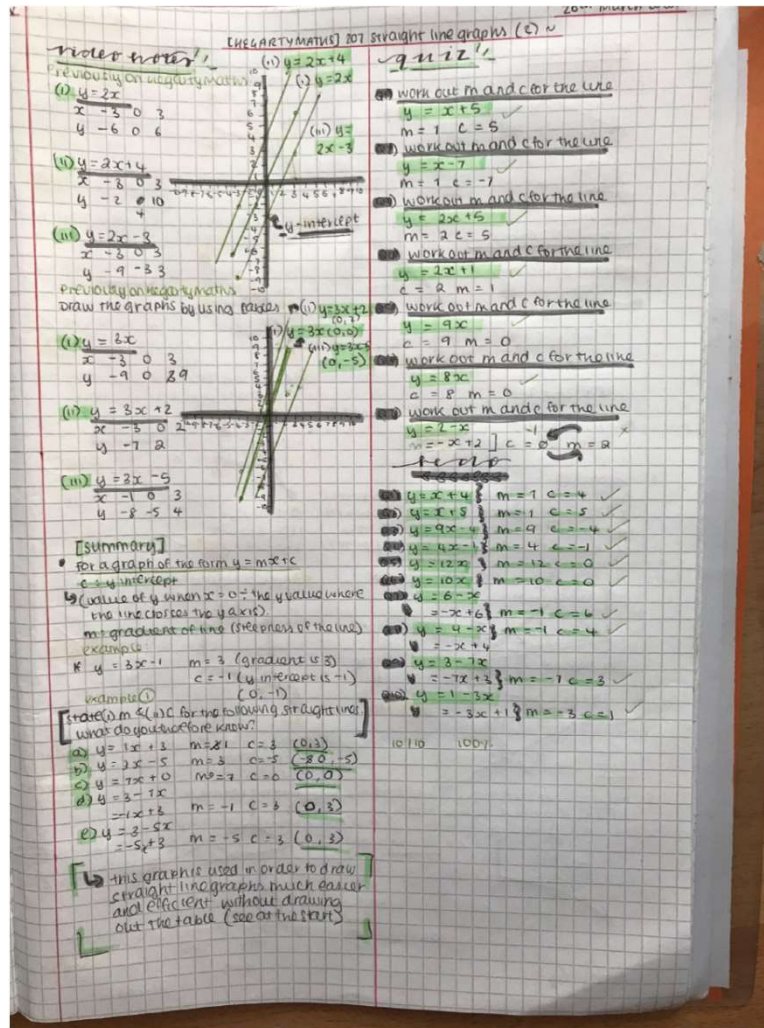 [HEGARTYMATHS] 207 straight line graphs (2) ~
video notes
Previously on hegartymaths
(i) y = 2x
x -3 0 3
y -6 0 6
(ii) y = 2x+4
x -3 0 3
y -2 10
4
(iii) y = 2x-3
x -3 0 3
y -9 -3 3
(ii) y = 2x+4
(i) y = 2x
(iii) y =
2x-3
y-intercept
Previously on hegartymaths
Draw the graphs by using tables
(i) y = 3x
x -3 0 3
y -9 0 9
(ii) y = 3x+2
x -3 0 2
y -7 2
(iii) y = 3x-5
x -1 0 3
y -8 -5 4
(ii) y=3x+2
y=3x (0,0)
(0,-5)
[summary]
• for a graph of the form y = mx+c
c = y intercept
↳ (value of y when x = 0 ÷ the y value where
the line crosses the y axis)
m = gradient of line (steepness of the line)
example
* y = 3x-1 m = 3 (gradient is 3)
c = -1 (y intercept is -1)
(0,-1)
example ①
state (i) m & (ii) c for the following straight lines
what do you therefore know?
a) y = 1x + 3 m = 1 c = 3 (0,3)
b) y = 3x - 5 m = 3 c = -5 (0,-5)
c) y = 7x + 0 m = 7 c = 0 (0,0)
d) y = 3 - 1x
= -1x+3 m = -1 c = 3 (0,3)
e) y = 3 - 5x
= -5x+3 m = -5 c = 3 (0,3)
↳ this graph is used in order to draw
straight line graphs much easier
and efficient without drawing
out the table (see at the start)
quiz
work out m and c for the line
y = x+5
m = 1 c = 5
work out m and c for the line
y = x-7
m = 1 c = -7
work out m and c for the line
y = 2x+5
m = 2 c = 5
work out m and c for the line
y = 2x+1
c = 2 m = 1
work out m and c for the line
y = 9x
c = 9 m = 0
work out m and c for the line
y = 8x
c = 8 m = 0
work out m and c for the line
y = 2-x
= -x+2 ] c = m = 2
redo
y = x+4 m = 1 c = 4
y = x+5 m = 1 c = 5
y = 9x-4 m = 9 c = -4
y = 4x-1 m = 4 c = -1
y = 12x m = 12 c = 0
y = 10x m = 10 c = 0
y = 6-x
= -x+6 } m = -1 c = 6
y = 4-x } m = -1 c = 4
= -x+4
y = 3-7x
= -7x+3 } m = -7 c = 3
y = 1-3x
= -3x+1 } m = -3 c = 1
10/10 100%